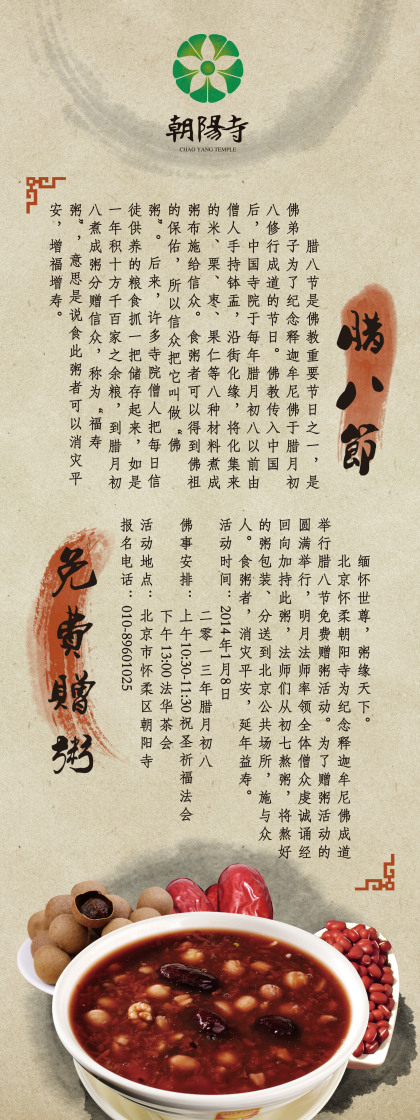 朝陽寺
CHAO YANG TEMPLE
腊八節
腊八节是佛教重要节日之一，是
佛弟子为了纪念释迦牟尼佛于腊月初
八修行成道的节日。佛教传入中国
后，中国寺院于每年腊月初八以前由
僧人手持钵盂，沿街化缘，将化集来
的米、栗、枣、果仁等八种材料煮成
粥布施给信众。食粥者可以得到佛祖
的保佑，所以信众把它叫做“佛
粥”。后来，许多寺院僧人把每日信
徒供养的粮食抓一把储存起来，如是
一年积十方千百家之余粮，到腊月初
八煮成粥分赠信众，称为“福寿
粥”，意思是说食此粥者可以消灾平
安，增福增寿。
缅怀世尊，粥缘天下。
北京怀柔朝阳寺为纪念释迦牟尼佛成道
举行腊八节免费赠粥活动。为了赠粥活动的
圆满举行，明月法师率领全体僧众虔诚诵经
回向加持此粥，法师们从初七熬粥，将熬好
的粥包装、分送到北京公共场所，施与众
人。食粥者，消灾平安，延年益寿。
活动时间：2014年1月8日
二零一三年腊月初八
佛事安排：上午10:30-11:30祝圣祈福法会
下午13:00法华茶会
活动地点：北京市怀柔区朝阳寺
报名电话：010-89601025
免費贈粥